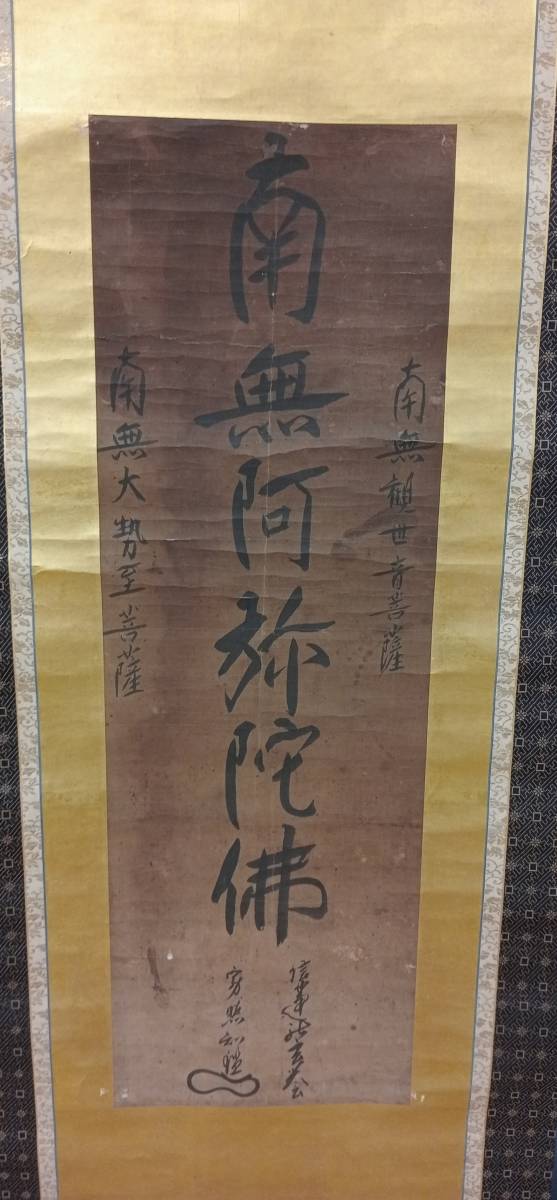 南無觀世音菩薩
南無阿弥陀佛
南無大勢至菩薩